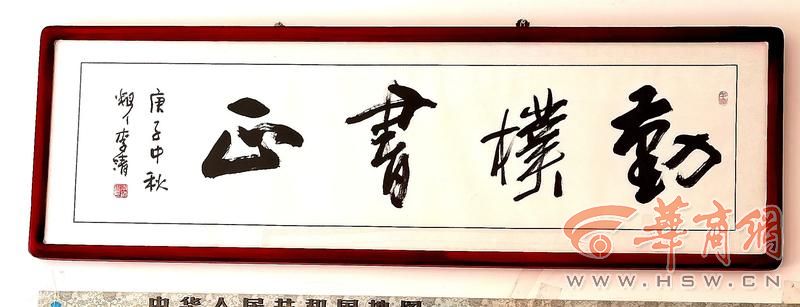 勤樸書正
庚子中秋
李
中华人民共和国地图
華商網
WWW.HSW.CN